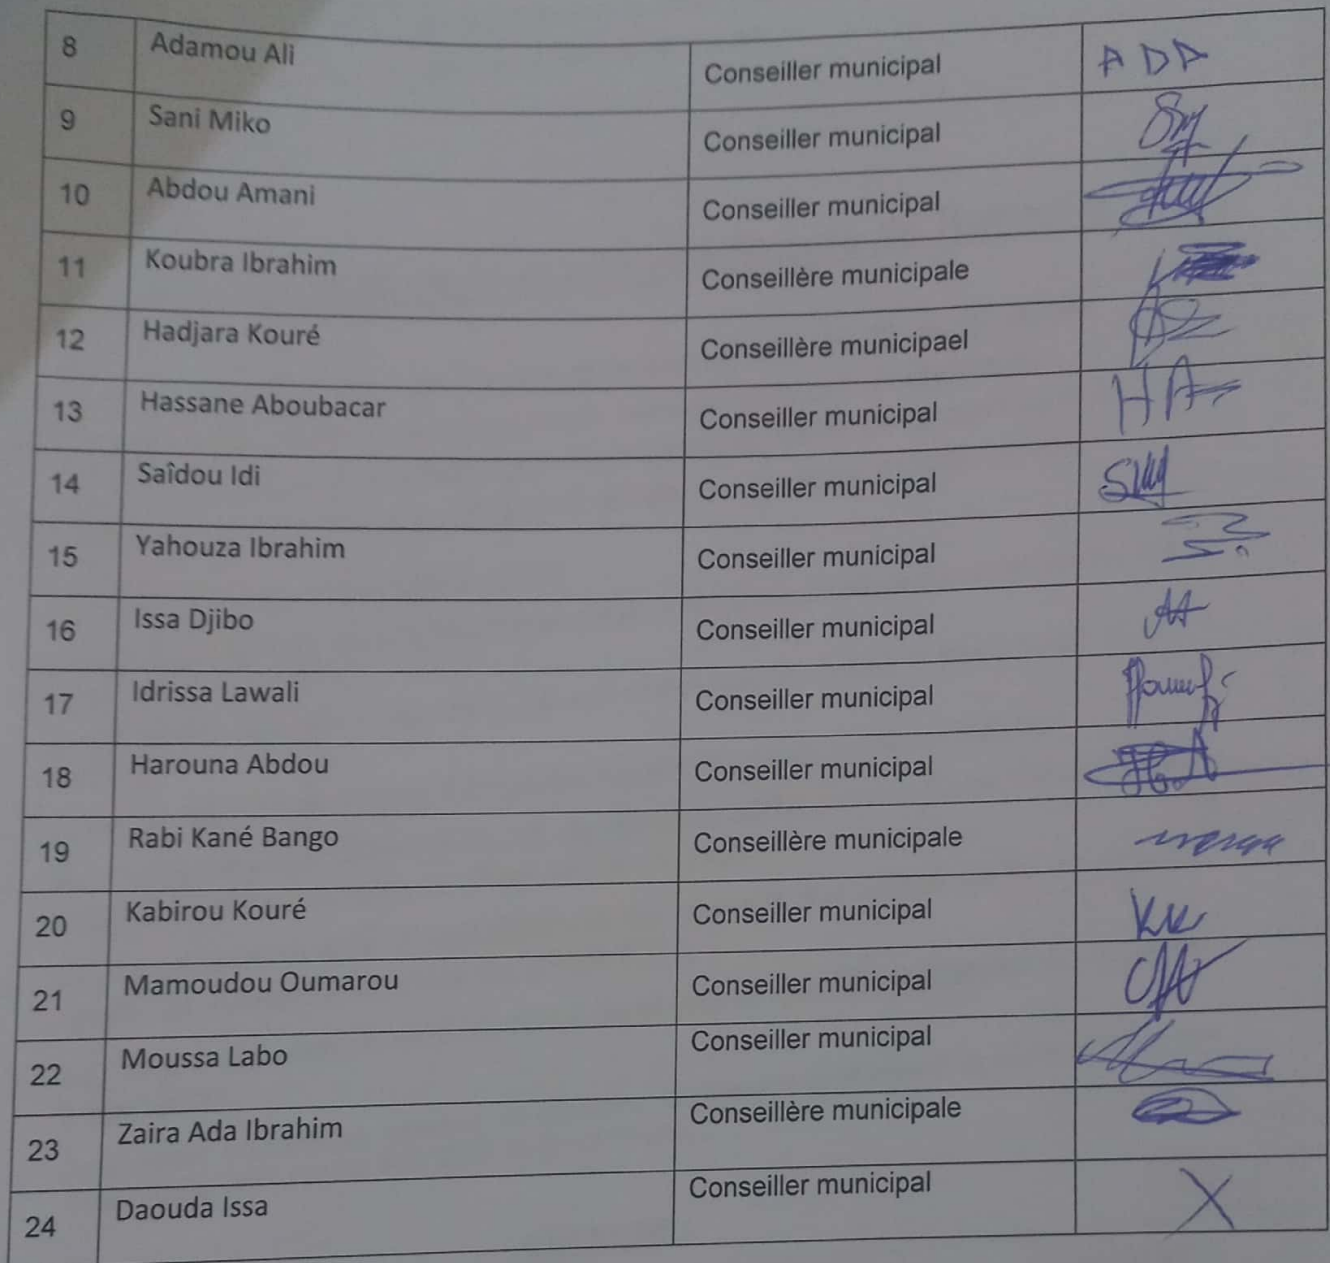 8 Adamou Ali Conseiller municipal ADA
9 Sani Miko Conseiller municipal
10 Abdou Amani Conseiller municipal
11 Koubra Ibrahim Conseillère municipale
12 Hadjara Kouré Conseillère municipael
13 Hassane Aboubacar Conseiller municipal HA
14 Saîdou Idi Conseiller municipal
15 Yahouza Ibrahim Conseiller municipal
16 Issa Djibo Conseiller municipal
17 Idrissa Lawali Conseiller municipal
18 Harouna Abdou Conseiller municipal
19 Rabi Kané Bango Conseillère municipale
20 Kabirou Kouré Conseiller municipal
21 Mamoudou Oumarou Conseiller municipal
22 Moussa Labo Conseiller municipal
23 Zaira Ada Ibrahim Conseillère municipale
24 Daouda Issa Conseiller municipal X